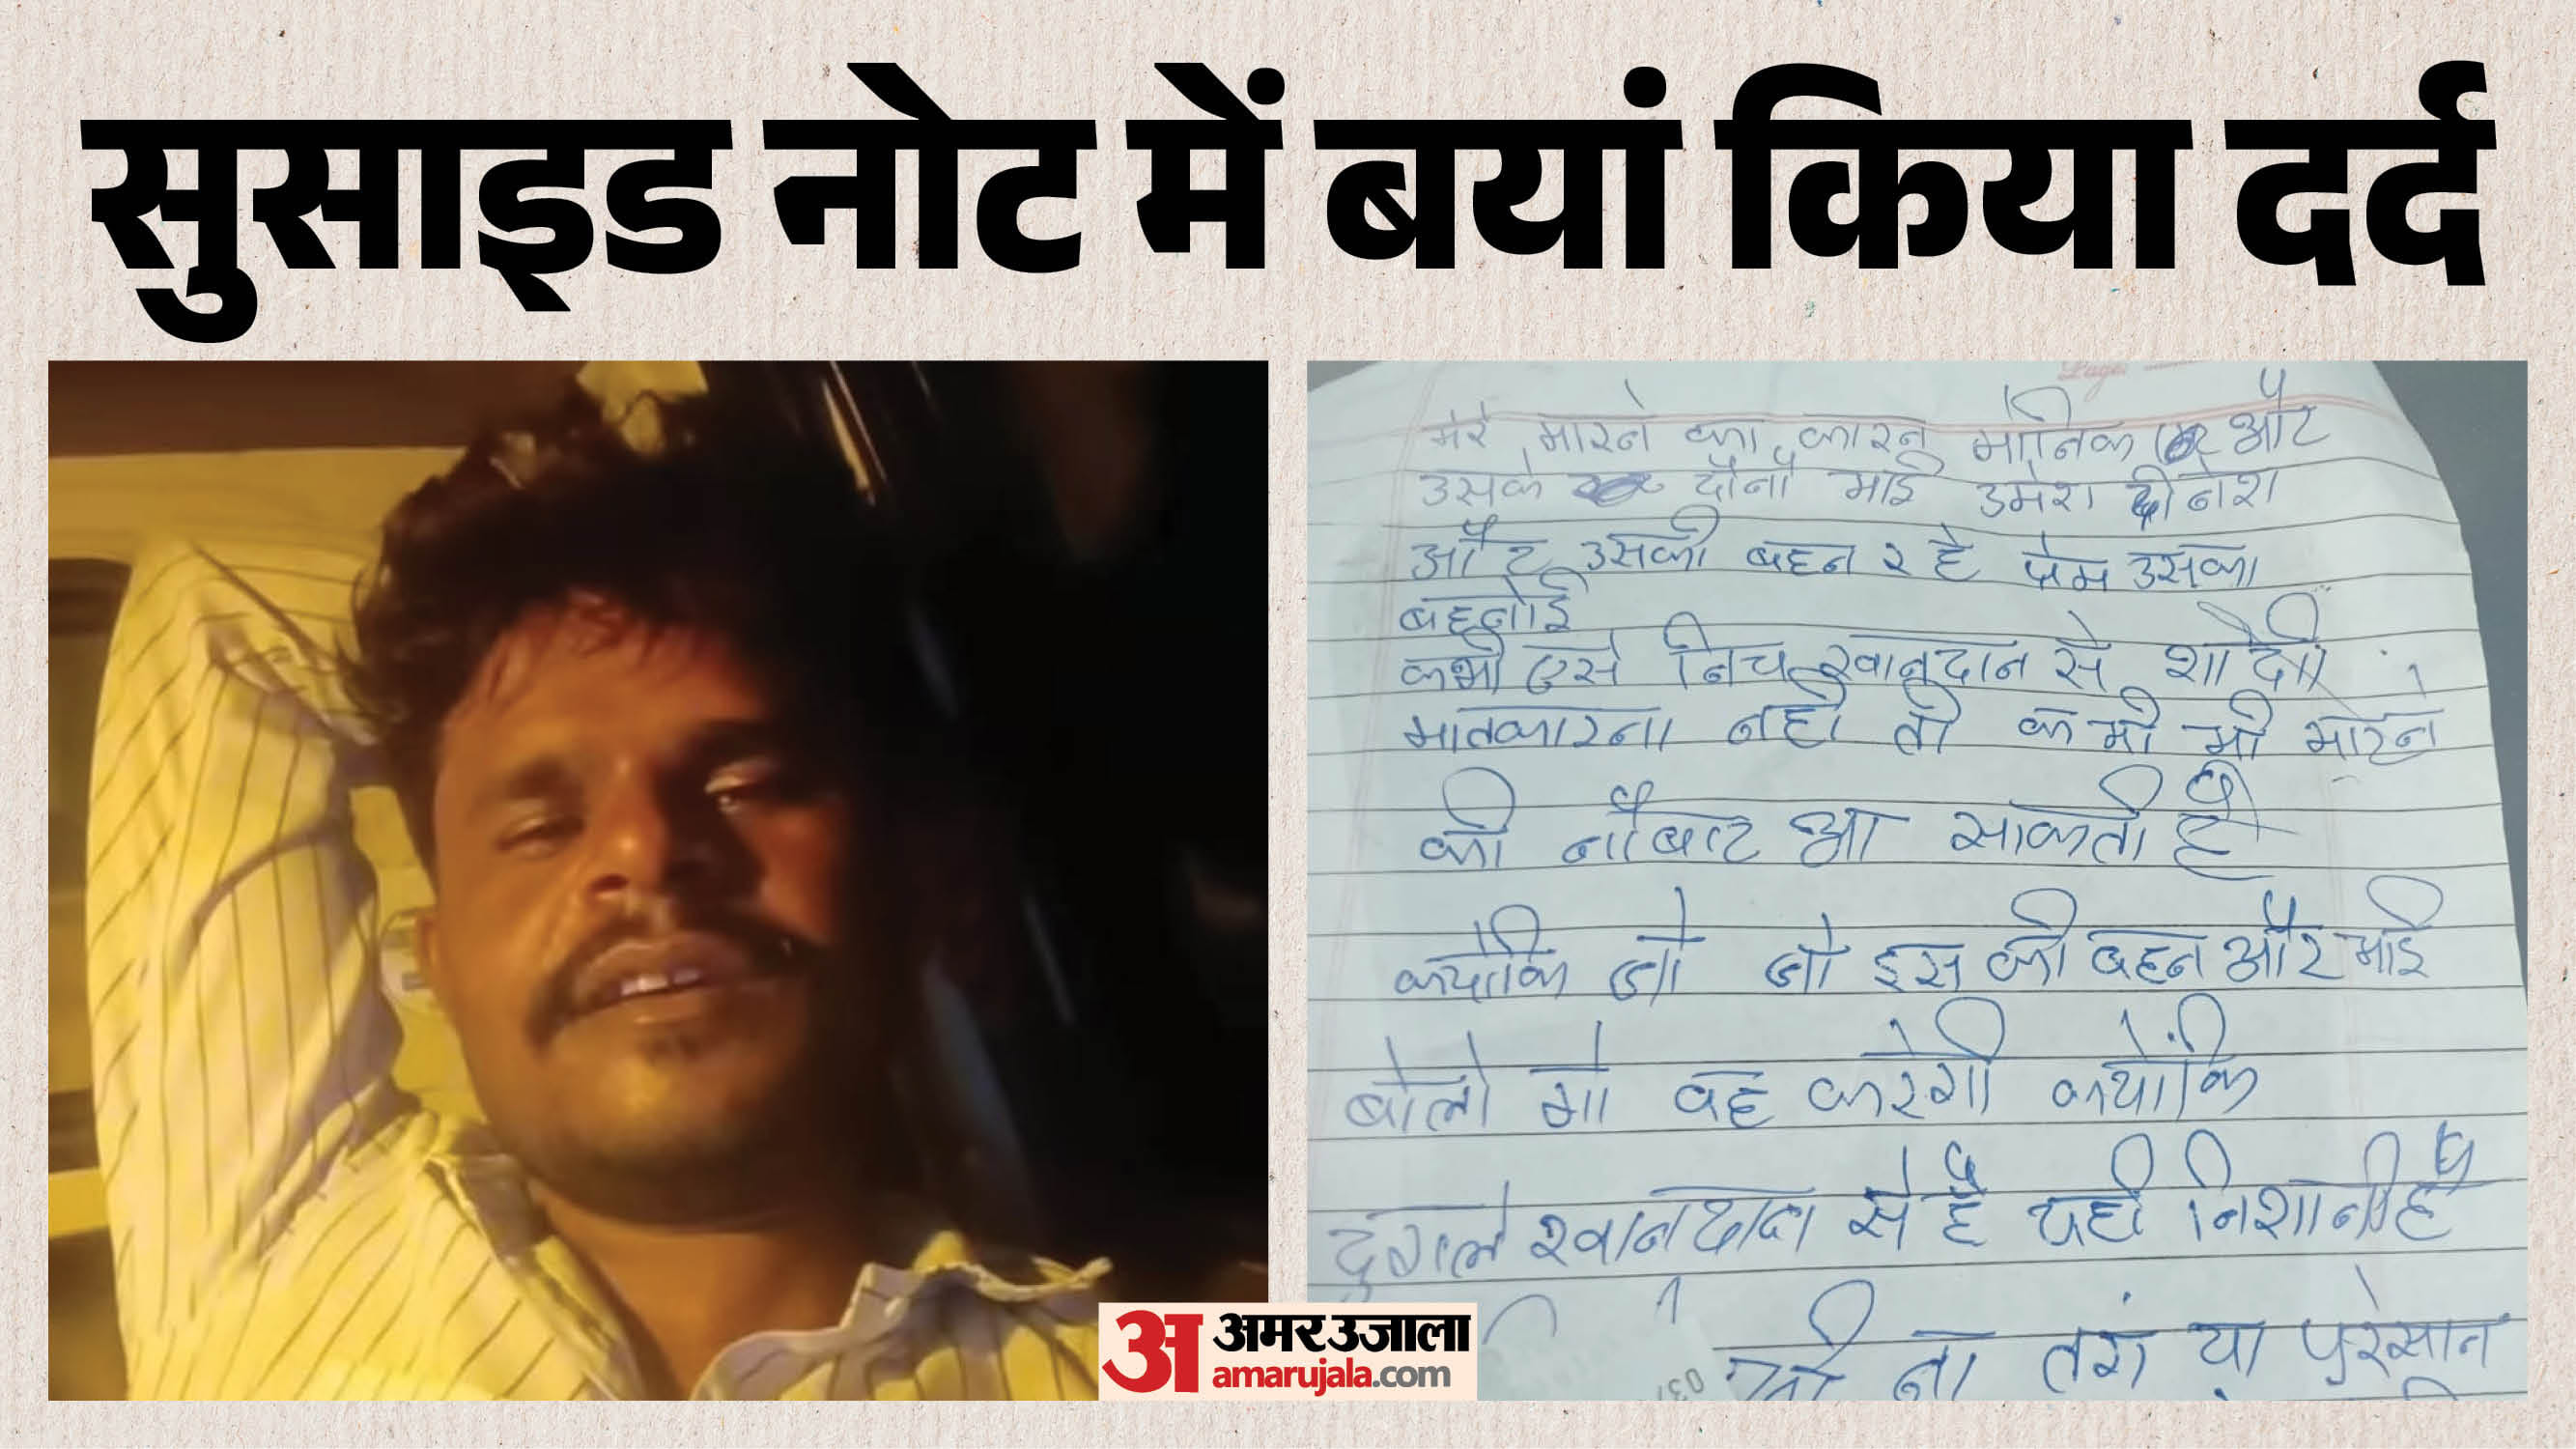 सुसाइड नोट में बयां किया दर्द
मेरे मारने का कारन मोनिक और
उसके दोनों भाई उमेश दीनेश
और उसकी बहन रहे प्रेम उसका
बहनोई
कभी एसे निच खानदान से शादी
मातकारना नही तो कभी भी मारने
की नौबात आ साकती है
क्योकि जो जो इस की बहन और भाई
बोलो गो वह करेगी क्योंकि
खानदान से है यही निशानी है
ना तंग या परेसान
अ अमर उजाला
amarujala.com